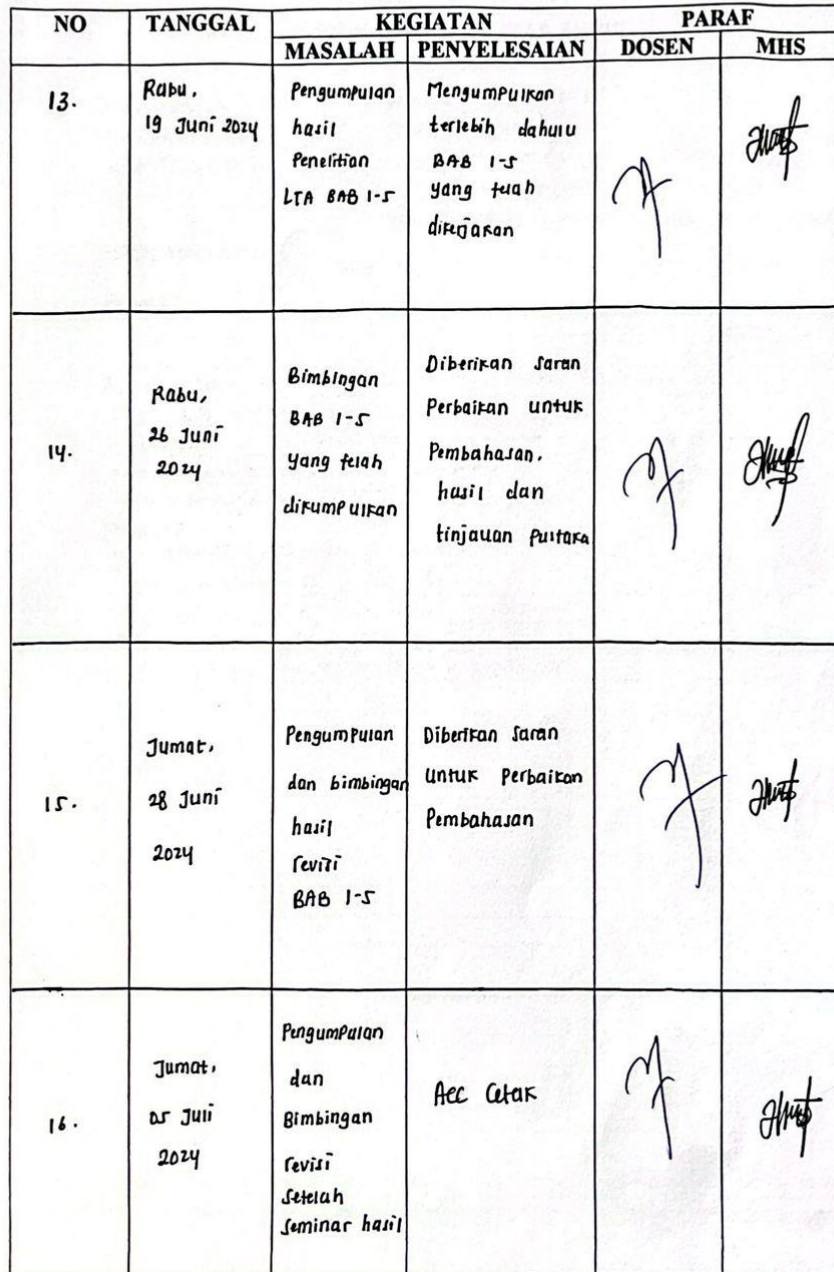 NO TANGGAL KEGIATAN PARAF
MASALAH PENYELESAIAN DOSEN MHS
13.
Rabu,
19 Juni 2024
Pengumpulan
hasil
Penelitian
LTA BAB 1-5
Mengumpulkan
terlebih dahulu
BAB 1-5
yang telah
dikerjakan
14.
Rabu,
26 Juni
2024
Bimbingan
BAB 1-5
yang telah
dikumpulkan
Diberikan saran
Perbaikan untuk
Pembahasan,
hasil dan
tinjauan pustaka
15.
Jumat,
28 Juni
2024
Pengumpulan
dan bimbingan
hasil
revisi
BAB 1-5
Diberikan saran
untuk Perbaikan
Pembahasan
16.
Jumat,
05 Juli
2024
Pengumpulan
dan
Bimbingan
revisi
setelah
seminar hasil
Acc Cetak